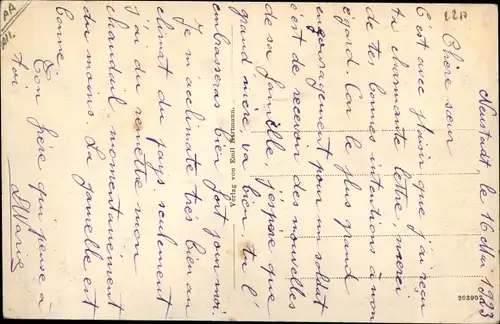 Neustadt, le 16 Mai 1923
Chère sœur
C'est avec plaisir que j'ai reçu
ta charmante lettre, merci
de tes bonnes intentions à mon
égard. Car le plus grand
encouragement pour un soldat
c'est de recevoir des nouvelles
de sa famille j'espère que
grand'mère va bien, tu l'
embrasseras bien fort pour moi.
Je m'aclimate très bien au
climat du pays seulement
j'ai du remettre mon
chandail momentanément
du moins. La gamelle est
bonne.
Ton frère qui pense à
toi
Verlag von Emil Hartmann.
202907
AA
All.